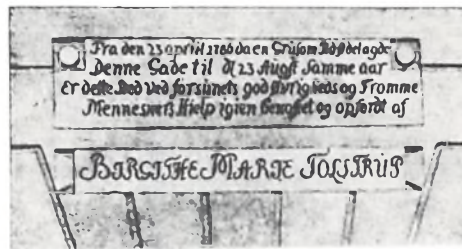 Fra den 23 april 1786 da en Grusom Ild Ødelagde
Denne Gade til d 23 Augst Samme aar
Er dette Sted ved forsunets god Øvrigheds og Fromme
Menneskers Hielp igien bebygget og opført af
BIRGITHE MARIE TOLSTRUP